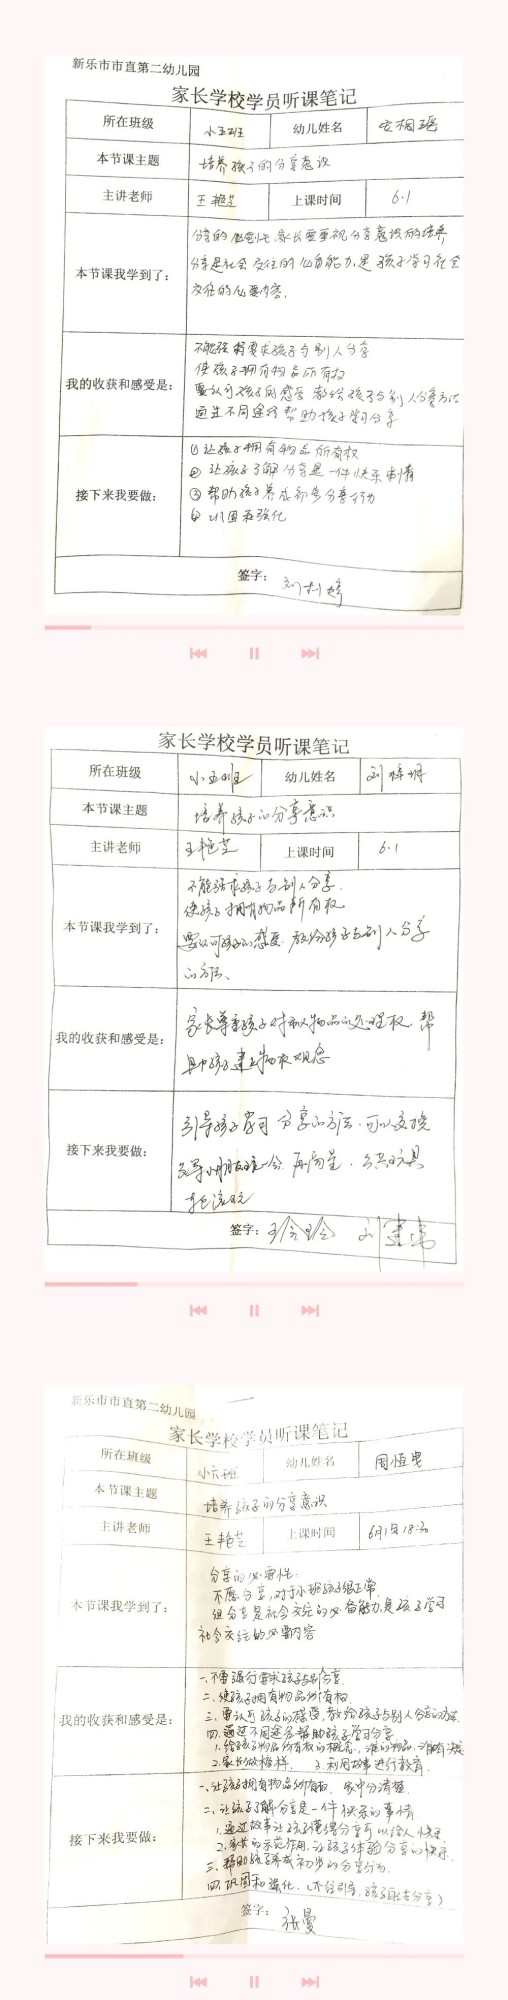 新乐市市直第二幼儿园
家长学校学员听课笔记
所在班级 小五班 幼儿姓名
本节课主题 培养孩子的分享意识
主讲老师 王艳芝 上课时间 6.1
本节课我学到了：
分享的必要性、家长要重视分享意识的培养
分享是社会交往的必备能力,是孩子学习社会
交往的必要内容。
我的收获和感受是：
不能强行要求孩子与别人分享
使孩子拥有物品所有权
要认可孩子的感受 教给孩子与别人分享方法
通过不同途径帮助孩子学习分享
接下来我要做：
①让孩子拥有物品所有权
② 让孩子了解分享是一件快乐事情
③ 帮助孩子养成初步分享行为
④ 巩固和强化
签字：
家长学校学员听课笔记
所在班级 小五班 幼儿姓名
本节课主题 培养孩子的分享意识
主讲老师 王艳芝 上课时间 6.1
本节课我学到了：
不能强求孩子与别人分享.
使孩子拥有物品所有权
要认可孩子的感受. 教给孩子与别人分享
的方法、
我的收获和感受是：
家长尊重孩子对私人物品的处理权 帮
助孩子建立物权观念
接下来我要做：
引导孩子学习分享的方法.可以交换
玩具
轮流玩
签字：
新乐市市直第二幼儿园
家长学校学员听课笔记
所在班级 小六班 幼儿姓名
本节课主题 培养孩子的分享意识
主讲老师 王艳芝 上课时间 6月1日18:30
本节课我学到了：
分享的必要性:
不愿分享,对于小班孩子很正常.
但分享是社会交往的必备能力,是孩子学习
社会交往的必要内容
我的收获和感受是：
一.不要强行要求孩子与别人分享
二.使孩子拥有物品所有权.
三.要认可孩子的感受,教给孩子与别人分享的办法.
四.通过不同途径帮助孩子学习分享.
1.给孩子物品所有权的概念,谁的物品,谁有决定
2.家长做榜样. 3.利用故事进行教育.
接下来我要做：
一.让孩子拥有物品所有权. 家中分清楚.
二.让孩子了解分享是一件快乐的事情
1.通过故事让孩子懂得分享可以给人快乐.
2.家长的示范作用,让孩子体验分享的快乐.
三.帮助孩子养成初步的分享行为.
四.巩固和强化.
签字： 张曼